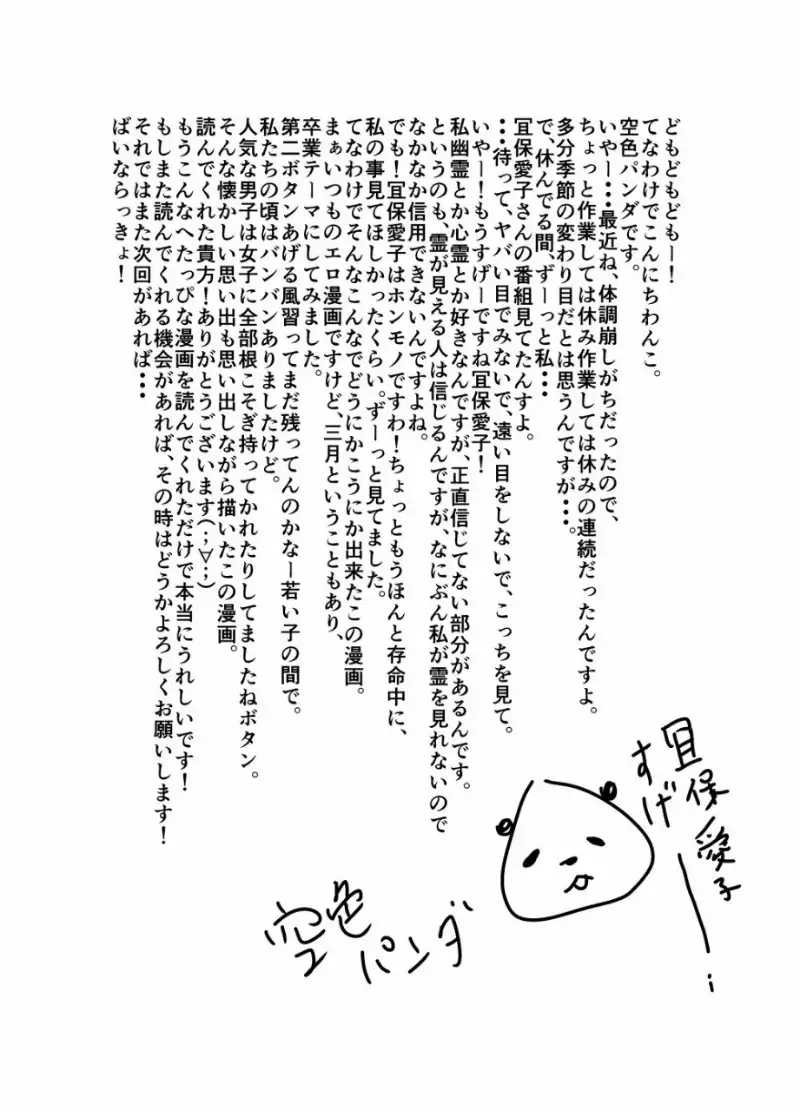 どもどもどもー！
てなわけでこんにちわんこ。
空色パンダです。
いやー・・最近ね、体調崩しがちだったので、
ちょっと作業しては休み作業しては休みの連続だったんですよ。
多分季節の変わり目だとは思うんですが・・・。
で、休んでる間、ずーっと私・・・
冝保愛子さんの番組見てたんすよ。
・・・待って、ヤバい目でみないで、遠い目をしないで、こっちを見て。
いやー！もうすげーですね冝保愛子！
私幽霊とか心霊とか好きなんですが、正直信じてない部分があるんです。
というのも、霊が見える人は信じるんですが、なにぶん私が霊を見れないので
なかなか信用できないんですよね。
でも！冝保愛子はホンモノですわ！ちょっともうほんと存命中に、
私の事見てほしかったくらい。ずーっと見てました。
てなわけでそんなこんなでどうにかこうにか出来たこの漫画。
まぁいつものエロ漫画ですけど、三月ということもあり、
卒業テーマにしてみました。
第二ボタンあげる風習ってまだ残ってんのかなー若い子の間で。
私たちの頃はバンバンありましたけど。
人気な男子は女子に全部根こそぎ持ってかれたりしてましたねボタン。
そんな懐かしい思い出も思い出しながら描いたこの漫画。
読んでくれた貴方！ありがとうございます(；∀；)
もうこんなへたっぴな漫画を読んでくれただけで本当にうれしいです！
もしまた読んでくれる機会があれば、その時はどうかよろしくお願いします！
それではまた次回があれば・・・
ばいならっきょ！
冝保愛子
すげー！
空色パンダ